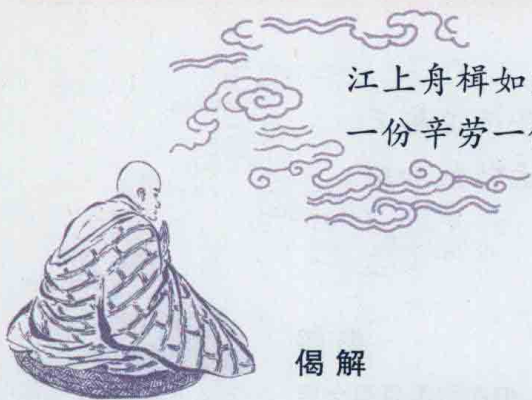 江上舟楫如
一份辛劳一
偈解